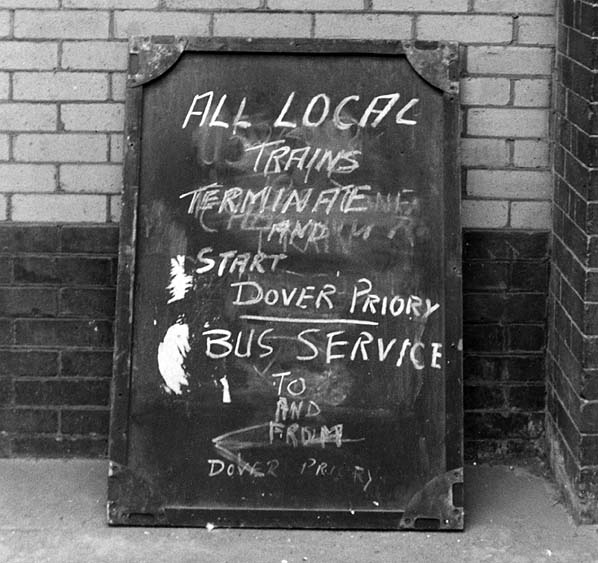 ALL LOCAL
TRAINS
TERMINATE
AND
START
DOVER PRIORY
BUS SERVICE
TO
AND
FROM
DOVER PRIORY